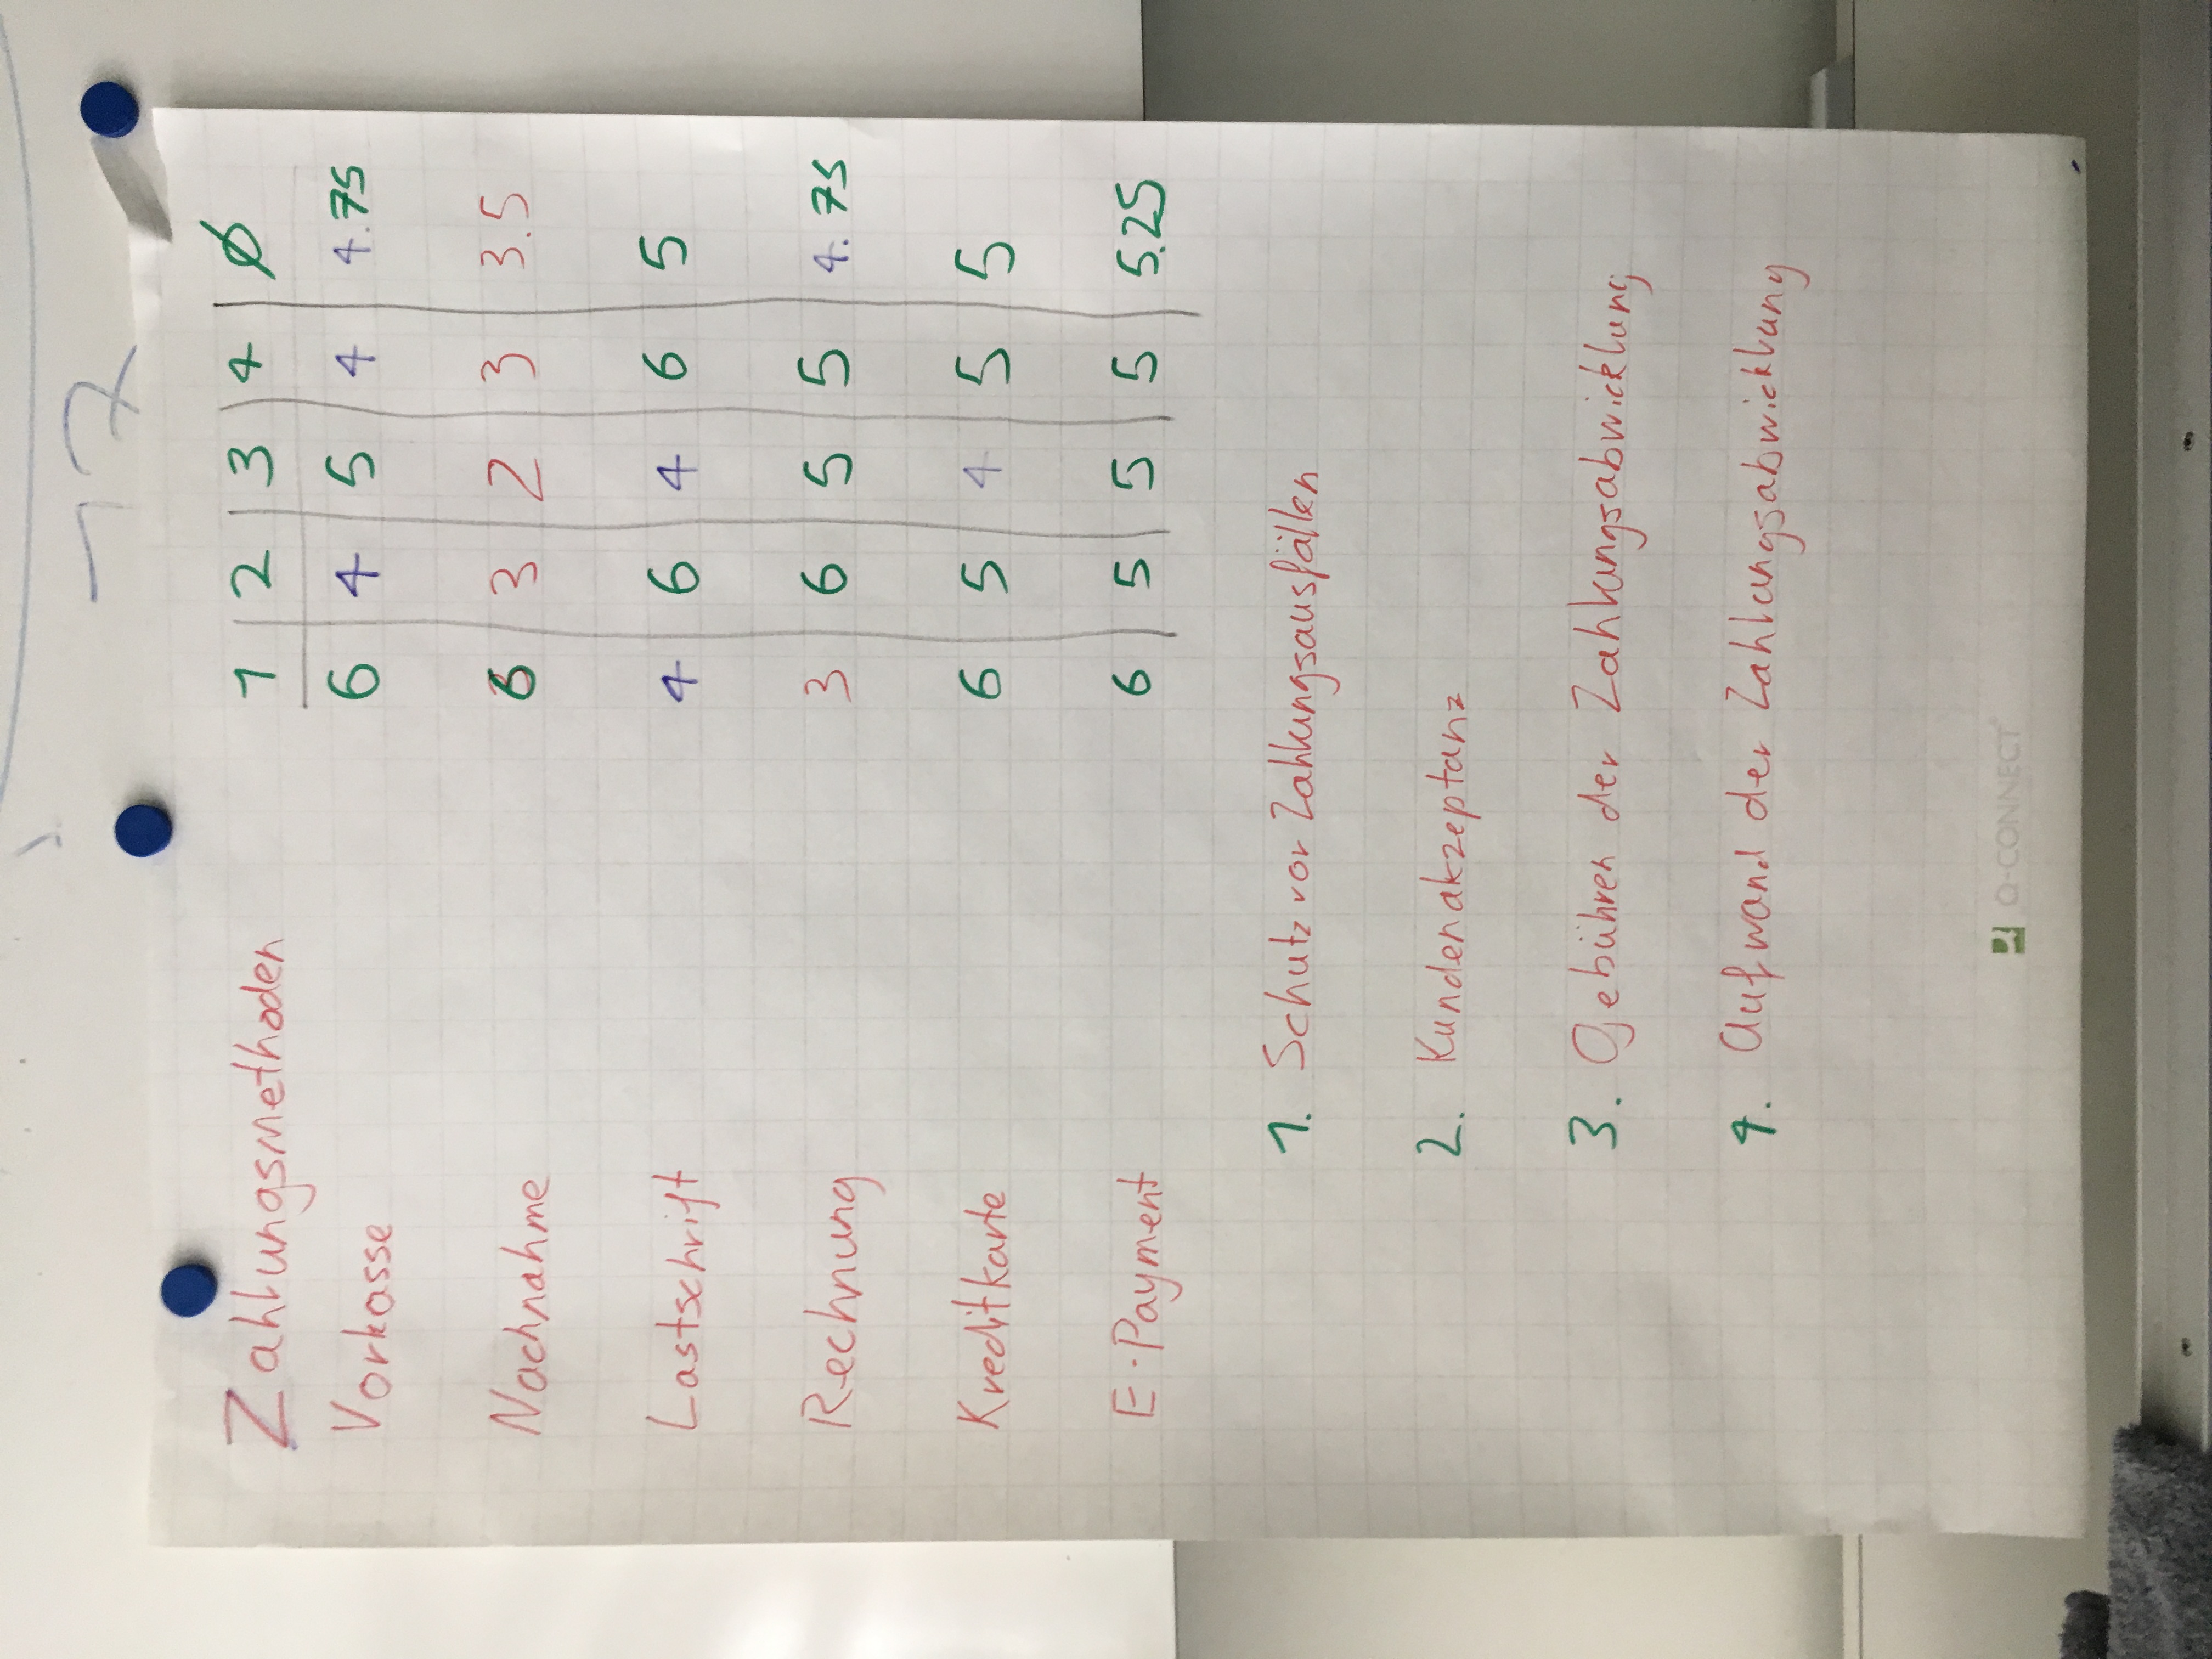 17
Zahlungsmethoden 1 2 3 4 Ø
Vorkasse 6 4 5 4 4.75
Nachnahme 6 3 2 3 3.5
Lastschrift 4 6 4 6 5
Rechnung 3 6 5 5 4.75
Kreditkarte 6 5 4 5 5
E-Payment 6 5 5 5 5.25
1. Schutz vor Zahlungsausfällen
2. Kundenakzeptanz
3. Gebühren der Zahlungsabwicklung
4. Aufwand der Zahlungsabwicklung
Q-CONNECT®